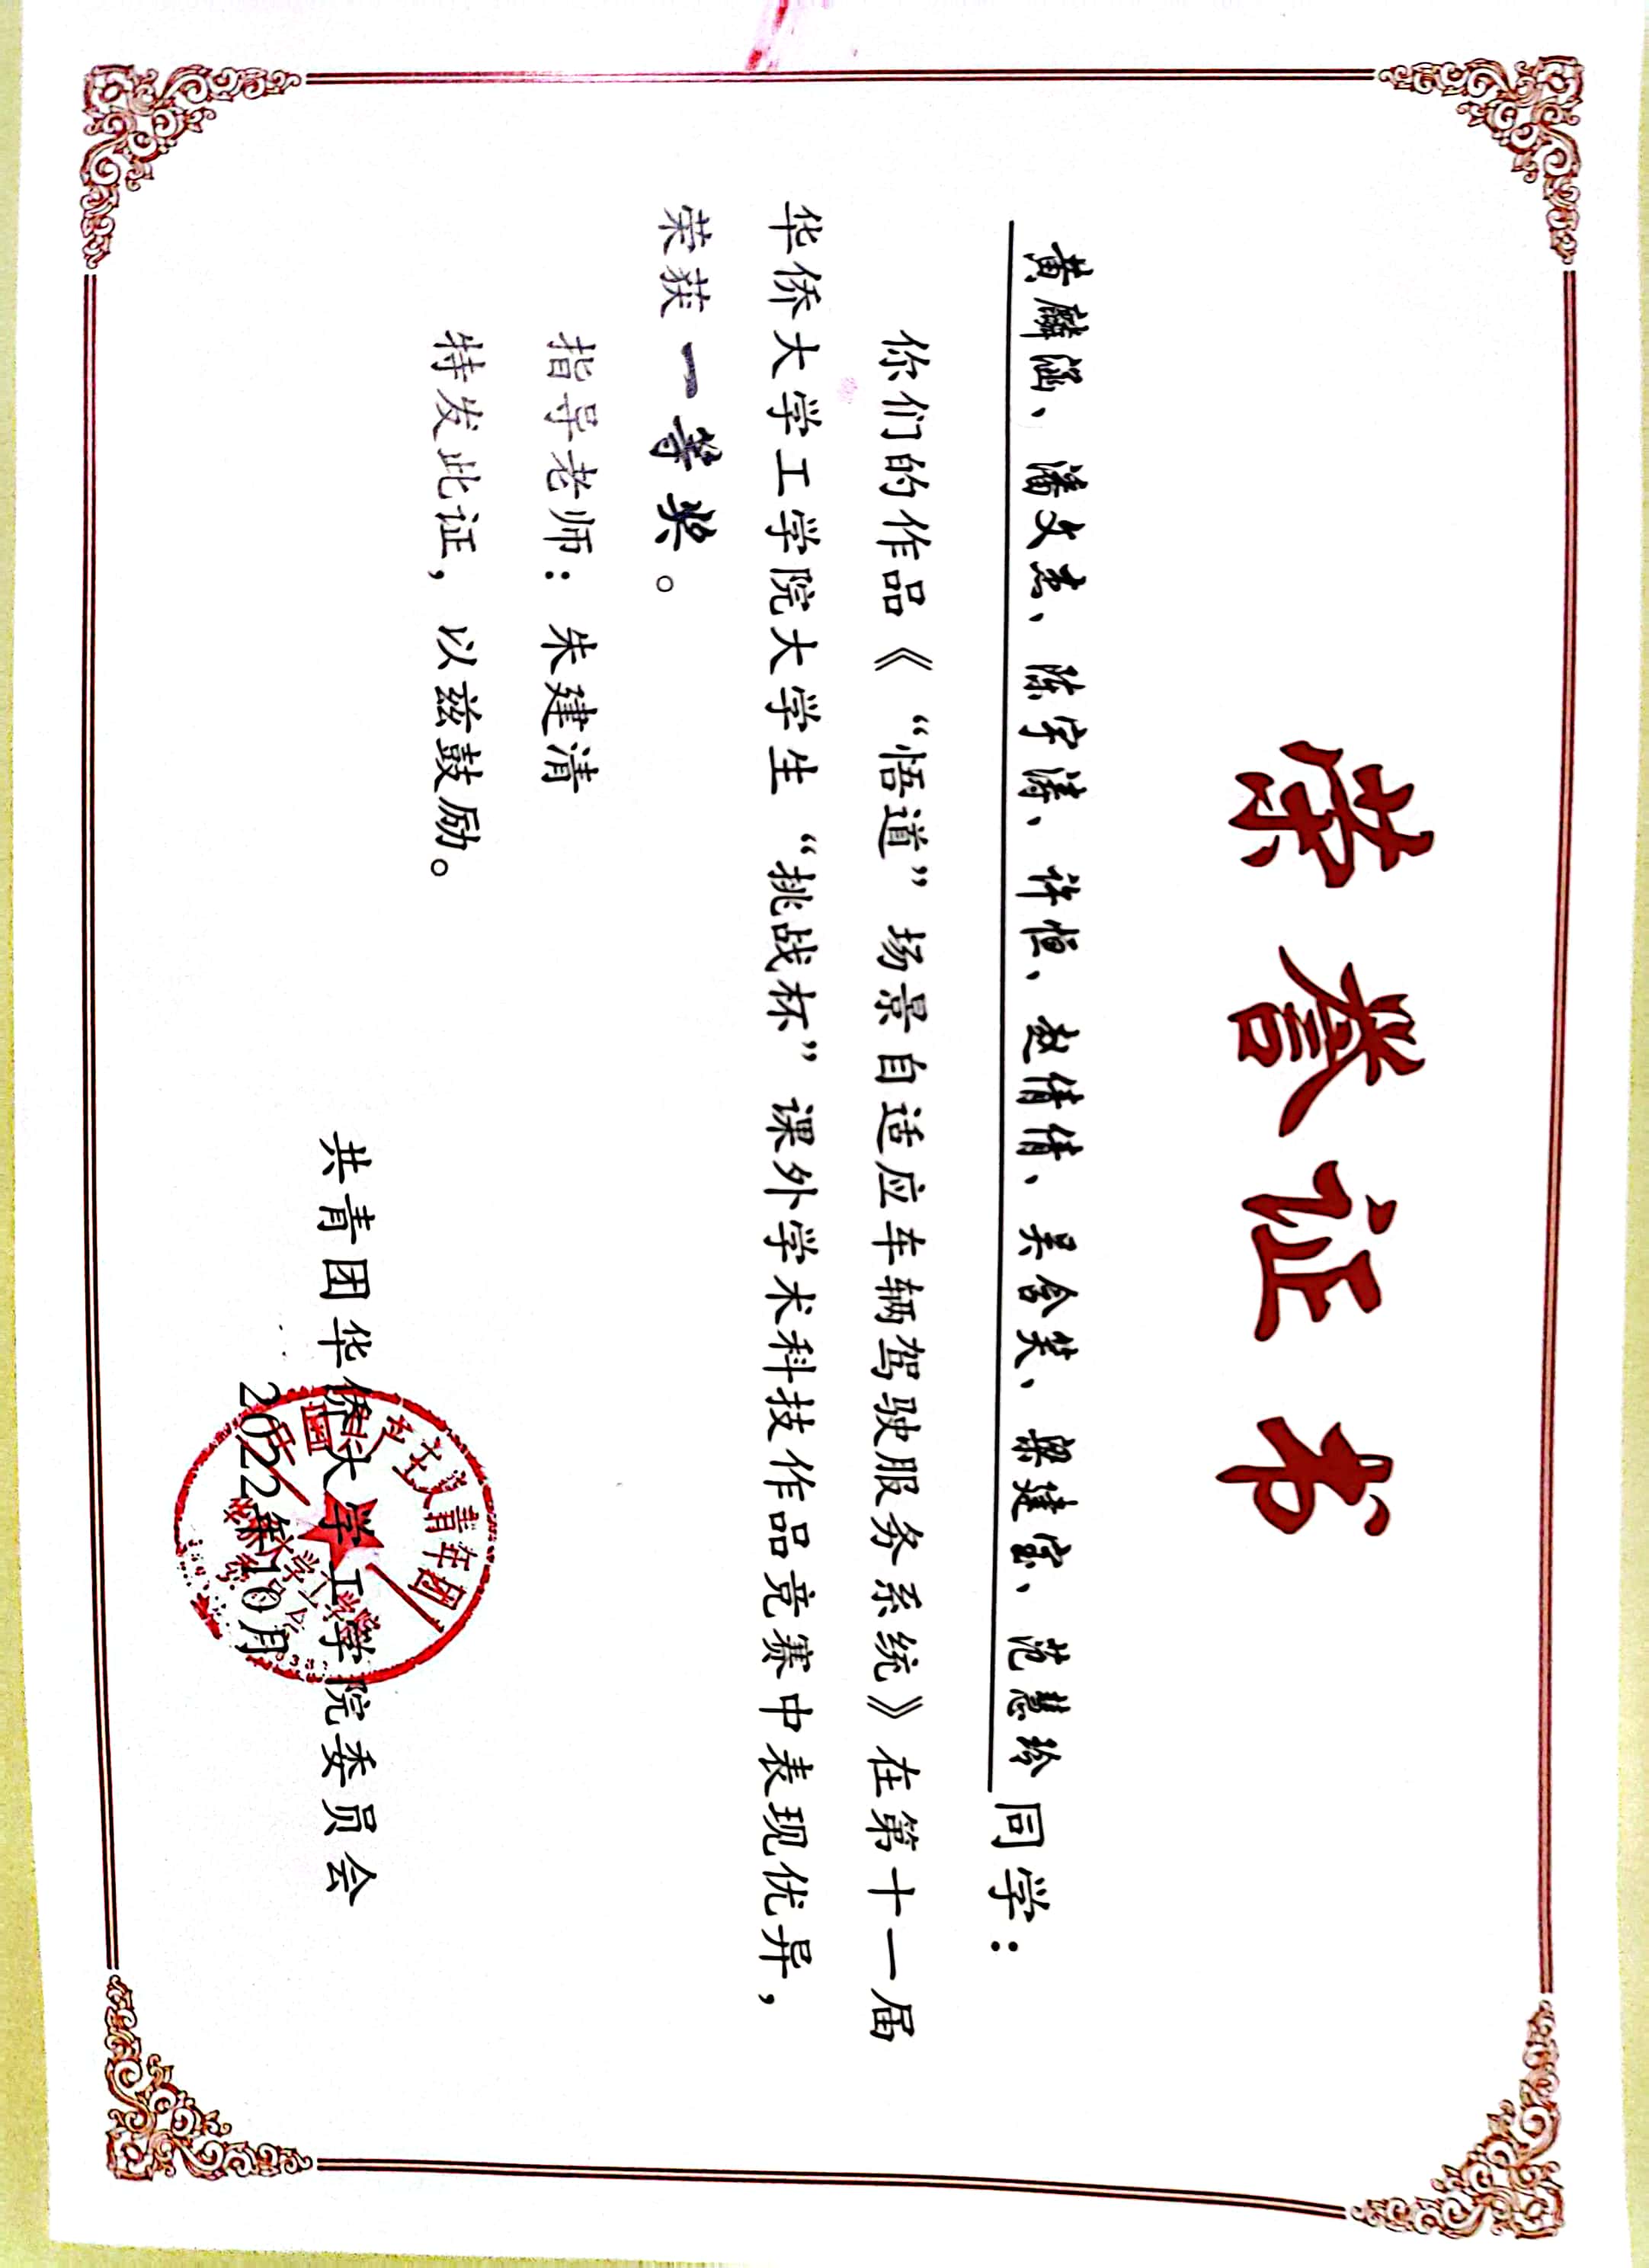 荣誉证书
黄麟涵、潘文杰、陈宇涛、许恒、赵倩倩、吴含笑、梁建宝、范慧玲同学：
你们的作品《“悟道”场景自适应车辆驾驶服务系统》在第十一届
华侨大学工学院大学生“挑战杯”课外学术科技作品竞赛中表现优异，
荣获一等奖。
指导老师：朱建清
特发此证，以兹鼓励。
共青团华侨大学工学院委员会
2022年10月